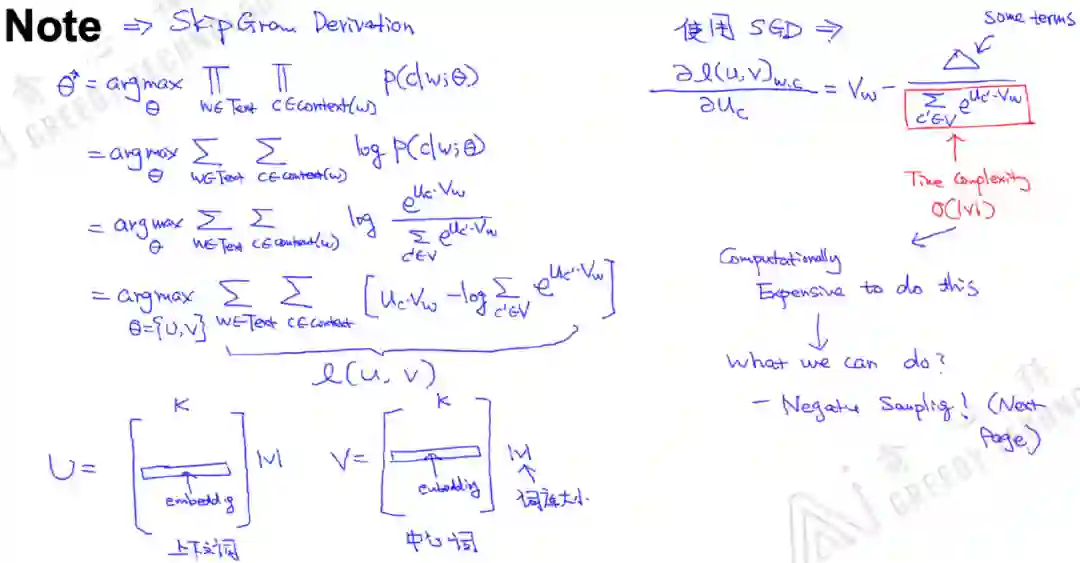 Note ⇒ SkipGram Derivation
θ* = argmax_θ ∏_{w∈Text} ∏_{c∈context(w)} p(c|w;θ)
= argmax_θ ∑_{w∈Text} ∑_{c∈context(w)} log p(c|w;θ)
= argmax_θ ∑_{w∈Text} ∑_{c∈context(w)} log (e^{u_c·v_w} / ∑_{c'∈V} e^{u_c'·v_w})
= argmax_{θ={u,v}} ∑_{w∈Text} ∑_{c∈context} [u_c·v_w − log ∑_{c'∈V} e^{u_c'·v_w}]
l(u,v)
K
U = [embeddig] |V|
上下文词
K
V = [embeddig] |V|
词库大小
中心词
使用 SGD ⇒
some terms
∂l(u,v)_{w,c} / ∂u_c = v_w − △ / ∑_{c'∈V} e^{u_c'·v_w}
Time Complexity
O(|V|)
Computationally
Expensive to do this
What we can do?
- Negative Samplig! (Next
Page)
GREEDY TECHNO